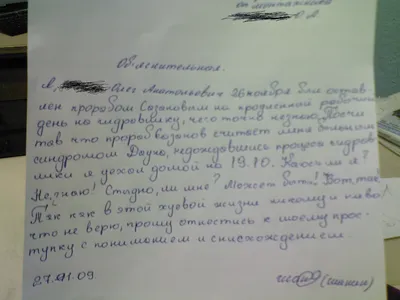 от монтажника
О А
Объяснительная.
Я, Олег Анатольевич 26 ноября был оставлен
лен прорабом Сазановым на продленный рабочий
день на гидровлику, чего точно незнаю. Посчи
тав что прораб Казанов считает меня больным
синдромом Дауна, недождавшись процесса гидров
лики я уехал домой на 19.10. Каюсь ли я?
Не знаю! Стыдно, ли мне? Может быть! Вот, так
Так как в этой хуевой жизни никому и ниво!
что не верю, прошу отнестись к моему прос
тупку с пониманием и снисхождением.
27.11.09.